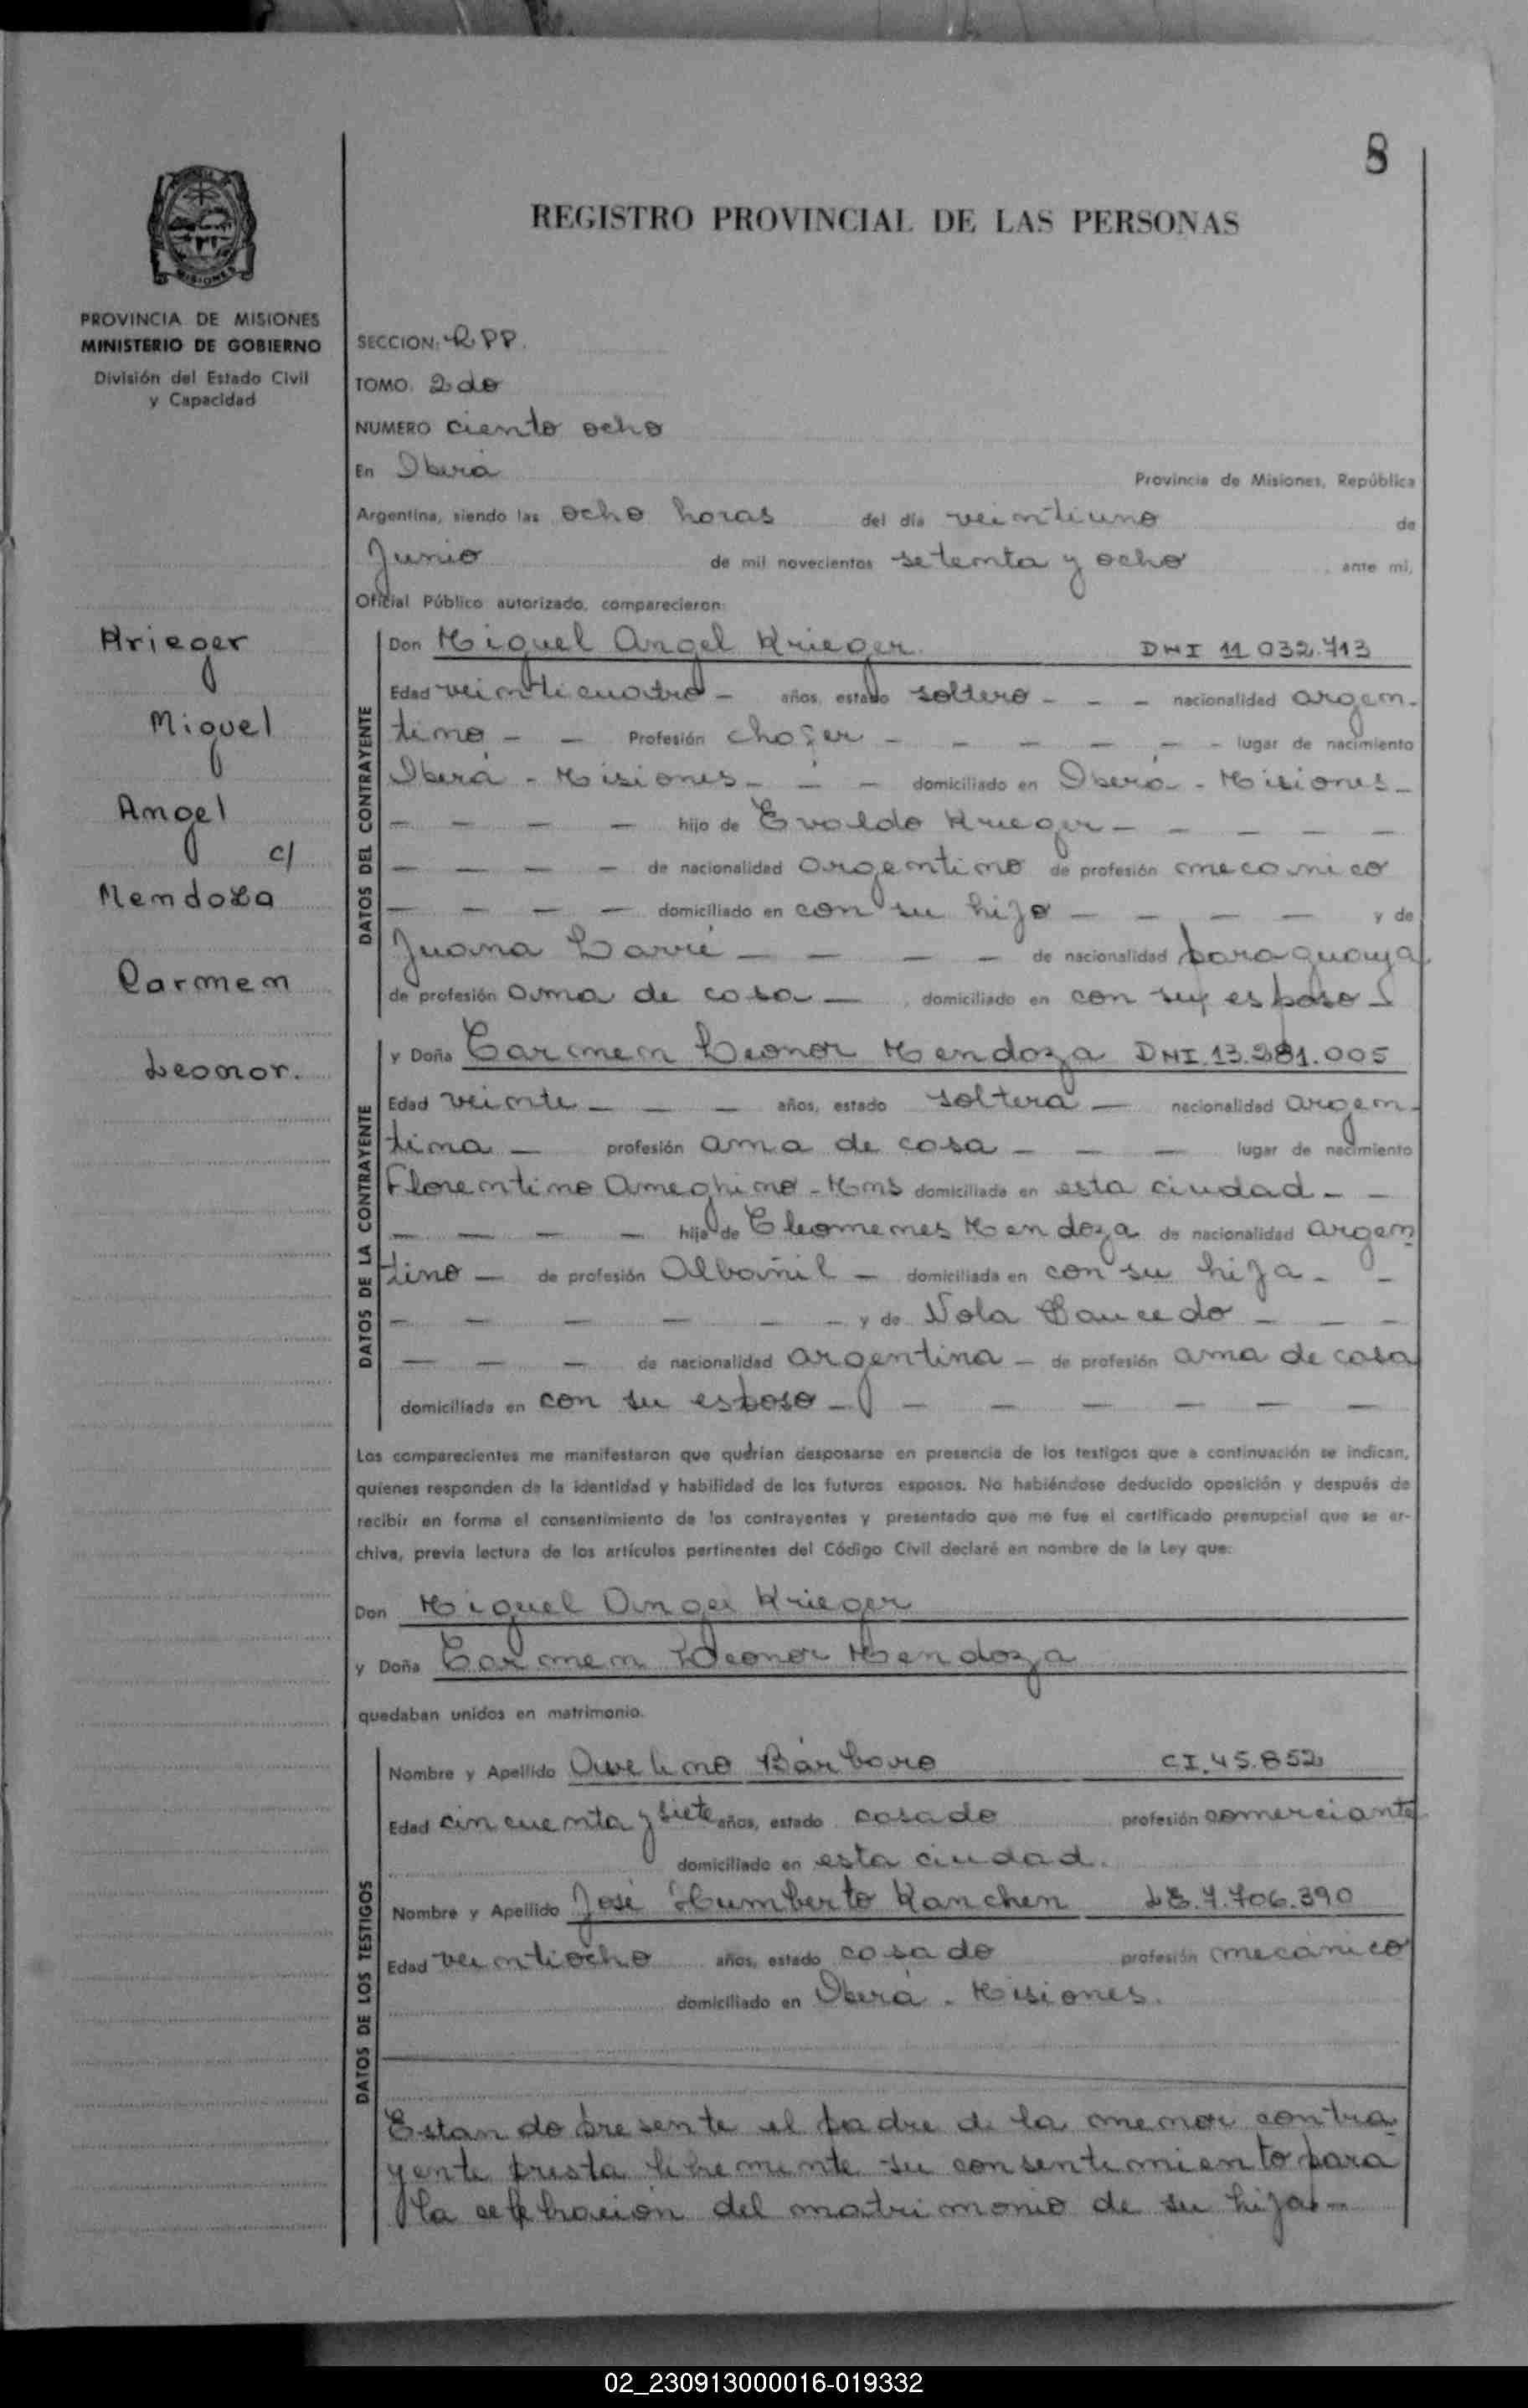 8
REGISTRO PROVINCIAL DE LAS PERSONAS
MISIONES
PROVINCIA DE MISIONES
MINISTERIO DE GOBIERNO
División del Estado Civil
y Capacidad
Krieger
Miguel
Angel
c/
Mendoza
Carmen
Leonor.
SECCION: RPP.
TOMO. 2do
NUMERO ciento ocho
En Oberá Provincia de Misiones, República
Argentina, siendo las ocho horas del día veintiuno de
Junio de mil novecientos setenta y ocho ante mi,
Oficial Público autorizado, comparecieron:
DATOS DEL CONTRAYENTE
Don Miguel Angel Krieger. DNI 11.032.713
Edad veinticuatro - años, estado soltero - - - nacionalidad argen-
tino - - Profesión chofer - - - - - - lugar de nacimiento
Oberá - Misiones - - - domiciliado en Oberá - Misiones -
- - - - hijo de Evaldo Krieger - - - - -
- - - - de nacionalidad argentino de profesión mecanico
- - - - domiciliado en con su hijo - - - - y de
Juana - - - - de nacionalidad paraguaya
de profesión ama de casa - domiciliado en con su esposo -
DATOS DE LA CONTRAYENTE
y Doña Carmen Leonor Mendoza DNI.13.281.005
Edad veinte - - - años, estado soltera - nacionalidad argen-
tina - profesión ama de casa - - - lugar de nacimiento
Florentino Ameghino - Mns domiciliada en esta ciudad - -
- - - - hija de Cleomenes Mendoza de nacionalidad argen
tino - de profesión Albañil - domiciliada en con su hija - -
- - - - - - y de Nola Saucedo - - -
- - - de nacionalidad argentina - de profesión ama de casa
domiciliada en con su esposo - - - - - - -
Los comparecientes me manifestaron que querían desposarse en presencia de los testigos que a continuación se indican,
quienes responden de la identidad y habilidad de los futuros esposos. No habiéndose deducido oposición y después de
recibir en forma el consentimiento de los contrayentes y presentado que me fue el certificado prenupcial que se ar-
chiva, previa lectura de los artículos pertinentes del Código Civil declaré en nombre de la Ley que:
Don Miguel Angel Krieger
y Doña Carmen Leonor Mendoza
quedaban unidos en matrimonio.
DATOS DE LOS TESTIGOS
Nombre y Apellido Avelino Bárbaro CI.45.852
Edad cincuenta y siete años, estado casado profesión comerciante
domiciliado en esta ciudad.
Nombre y Apellido José Humberto Kanchen LE.7.706.390
Edad veintiocho años, estado casado profesión mecánico
domiciliado en Oberá - Misiones.
Estando presente el padre de la menor contra
yente presta libremente su consentimiento para
la celebración del matrimonio de su hija.-
02_230913000016-019332